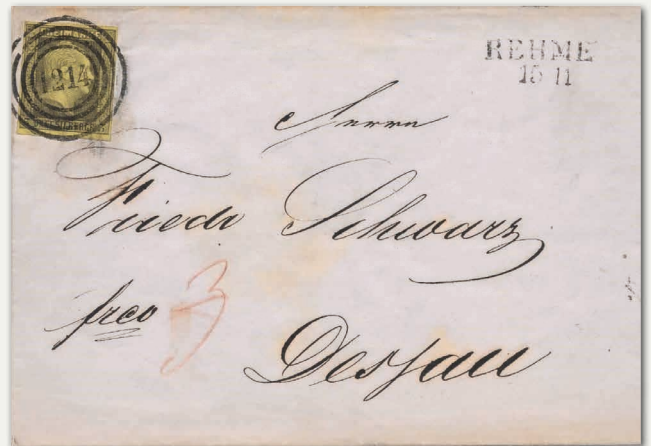 1214
REHME
15 11
Herrn
Friedr Schwarz
frco 3
Dessau